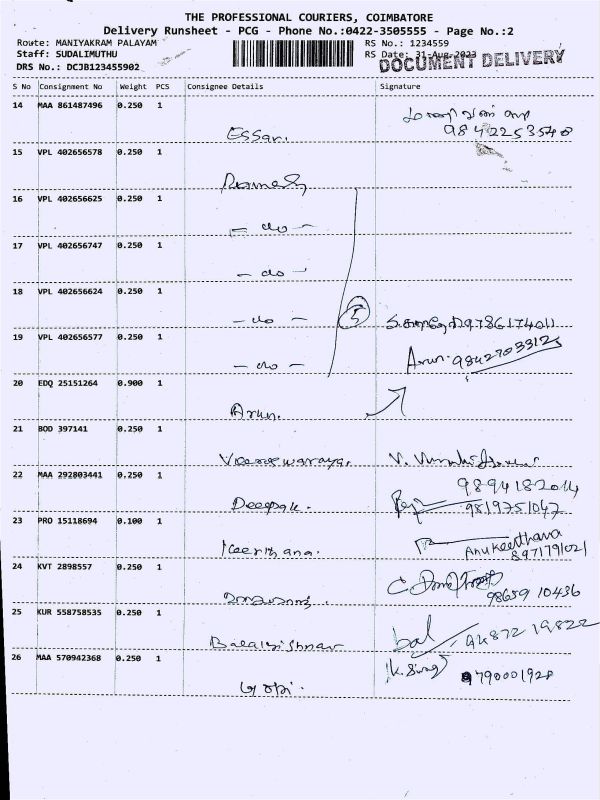 THE PROFESSIONAL COURIERS, COIMBATORE
Delivery Runsheet - PCG - Phone No.:0422-3505555 - Page No.:2
Route: MANIYAKRAM PALAYAM
RS No.: 1234559
Staff: SUDALIMUTHU
RS Date: 31-Aug-2023
DOCUMENT DELIVERY
DRS No.: DCJB123455902
S No Consignment No Weight PCS Consignee Details Signature
14 MAA 861487496 0.250 1
Essar. 9842253540
15 VPL 402656578 0.250 1
Ramesh
16 VPL 402656625 0.250 1
— do —
17 VPL 402656747 0.250 1
— do —
18 VPL 402656624 0.250 1
— do — 5 9786174011
19 VPL 402656577 0.250 1
— do — Arun. 9842703312
20 EDQ 25151264 0.900 1
Arun.
21 BOD 397141 0.250 1
22 MAA 292803441 0.250 1
9894182014
Deepak. 9819751047
23 PRO 15118694 0.100 1
Keerthana. Anukeerthava
8971791021
24 KVT 2898557 0.250 1
98659 10436
25 KUR 558758535 0.250 1
Balakrishnan bal 94872 19822
26 MAA 570942368 0.250 1
9790001928
கோபி.